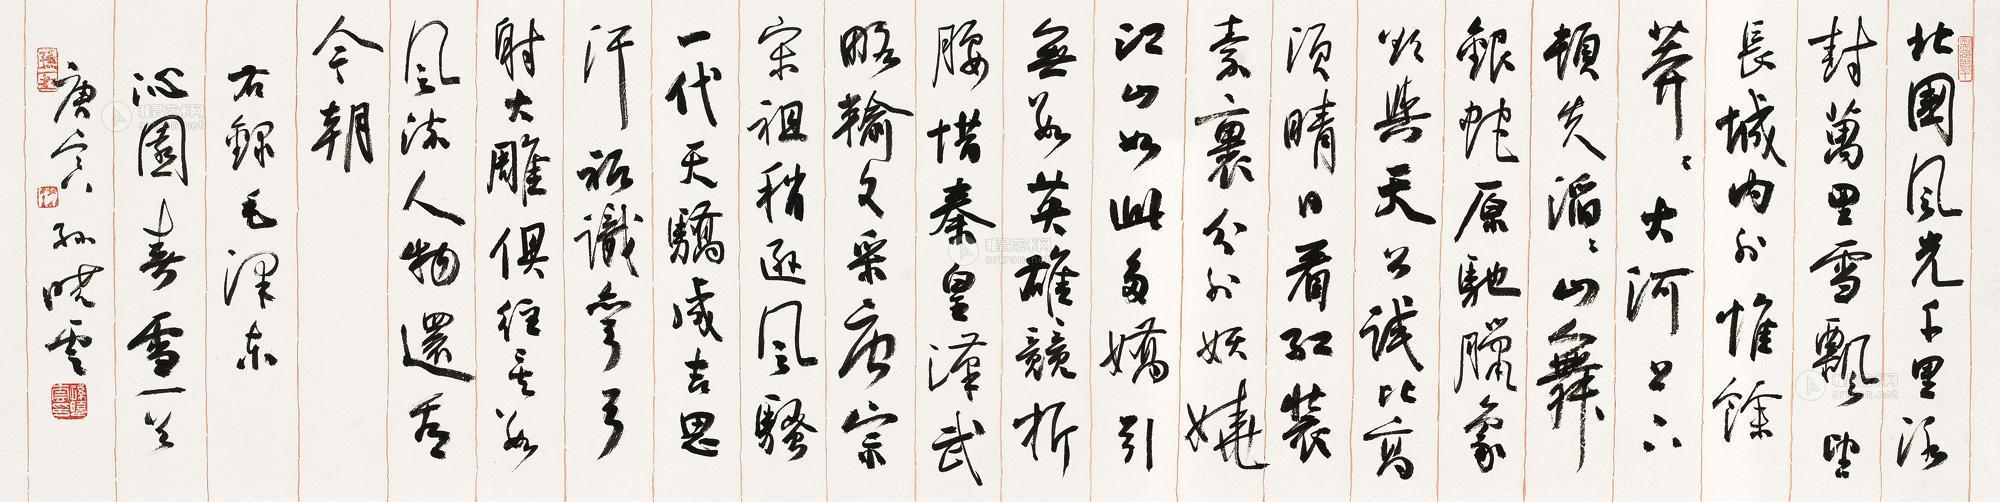 北國風光千里冰
封萬里雪飄望
長城內外惟餘
莽〻大河上下
頓失滔〻山舞
銀蛇原馳臘象
欲與天公試比高
須晴日看紅裝
素裹分外妖嬈
江山如此多嬌引
無數英雄競折
腰惜秦皇漢武
略輸文采唐宗
宋祖稍遜風騷
一代天驕成吉思
汗祇識彎弓
射大雕俱往矣數
風流人物還看
今朝
右錄毛澤東
沁園春雪一首
庚寅孫曉雲
雅昌艺术网
artron.net